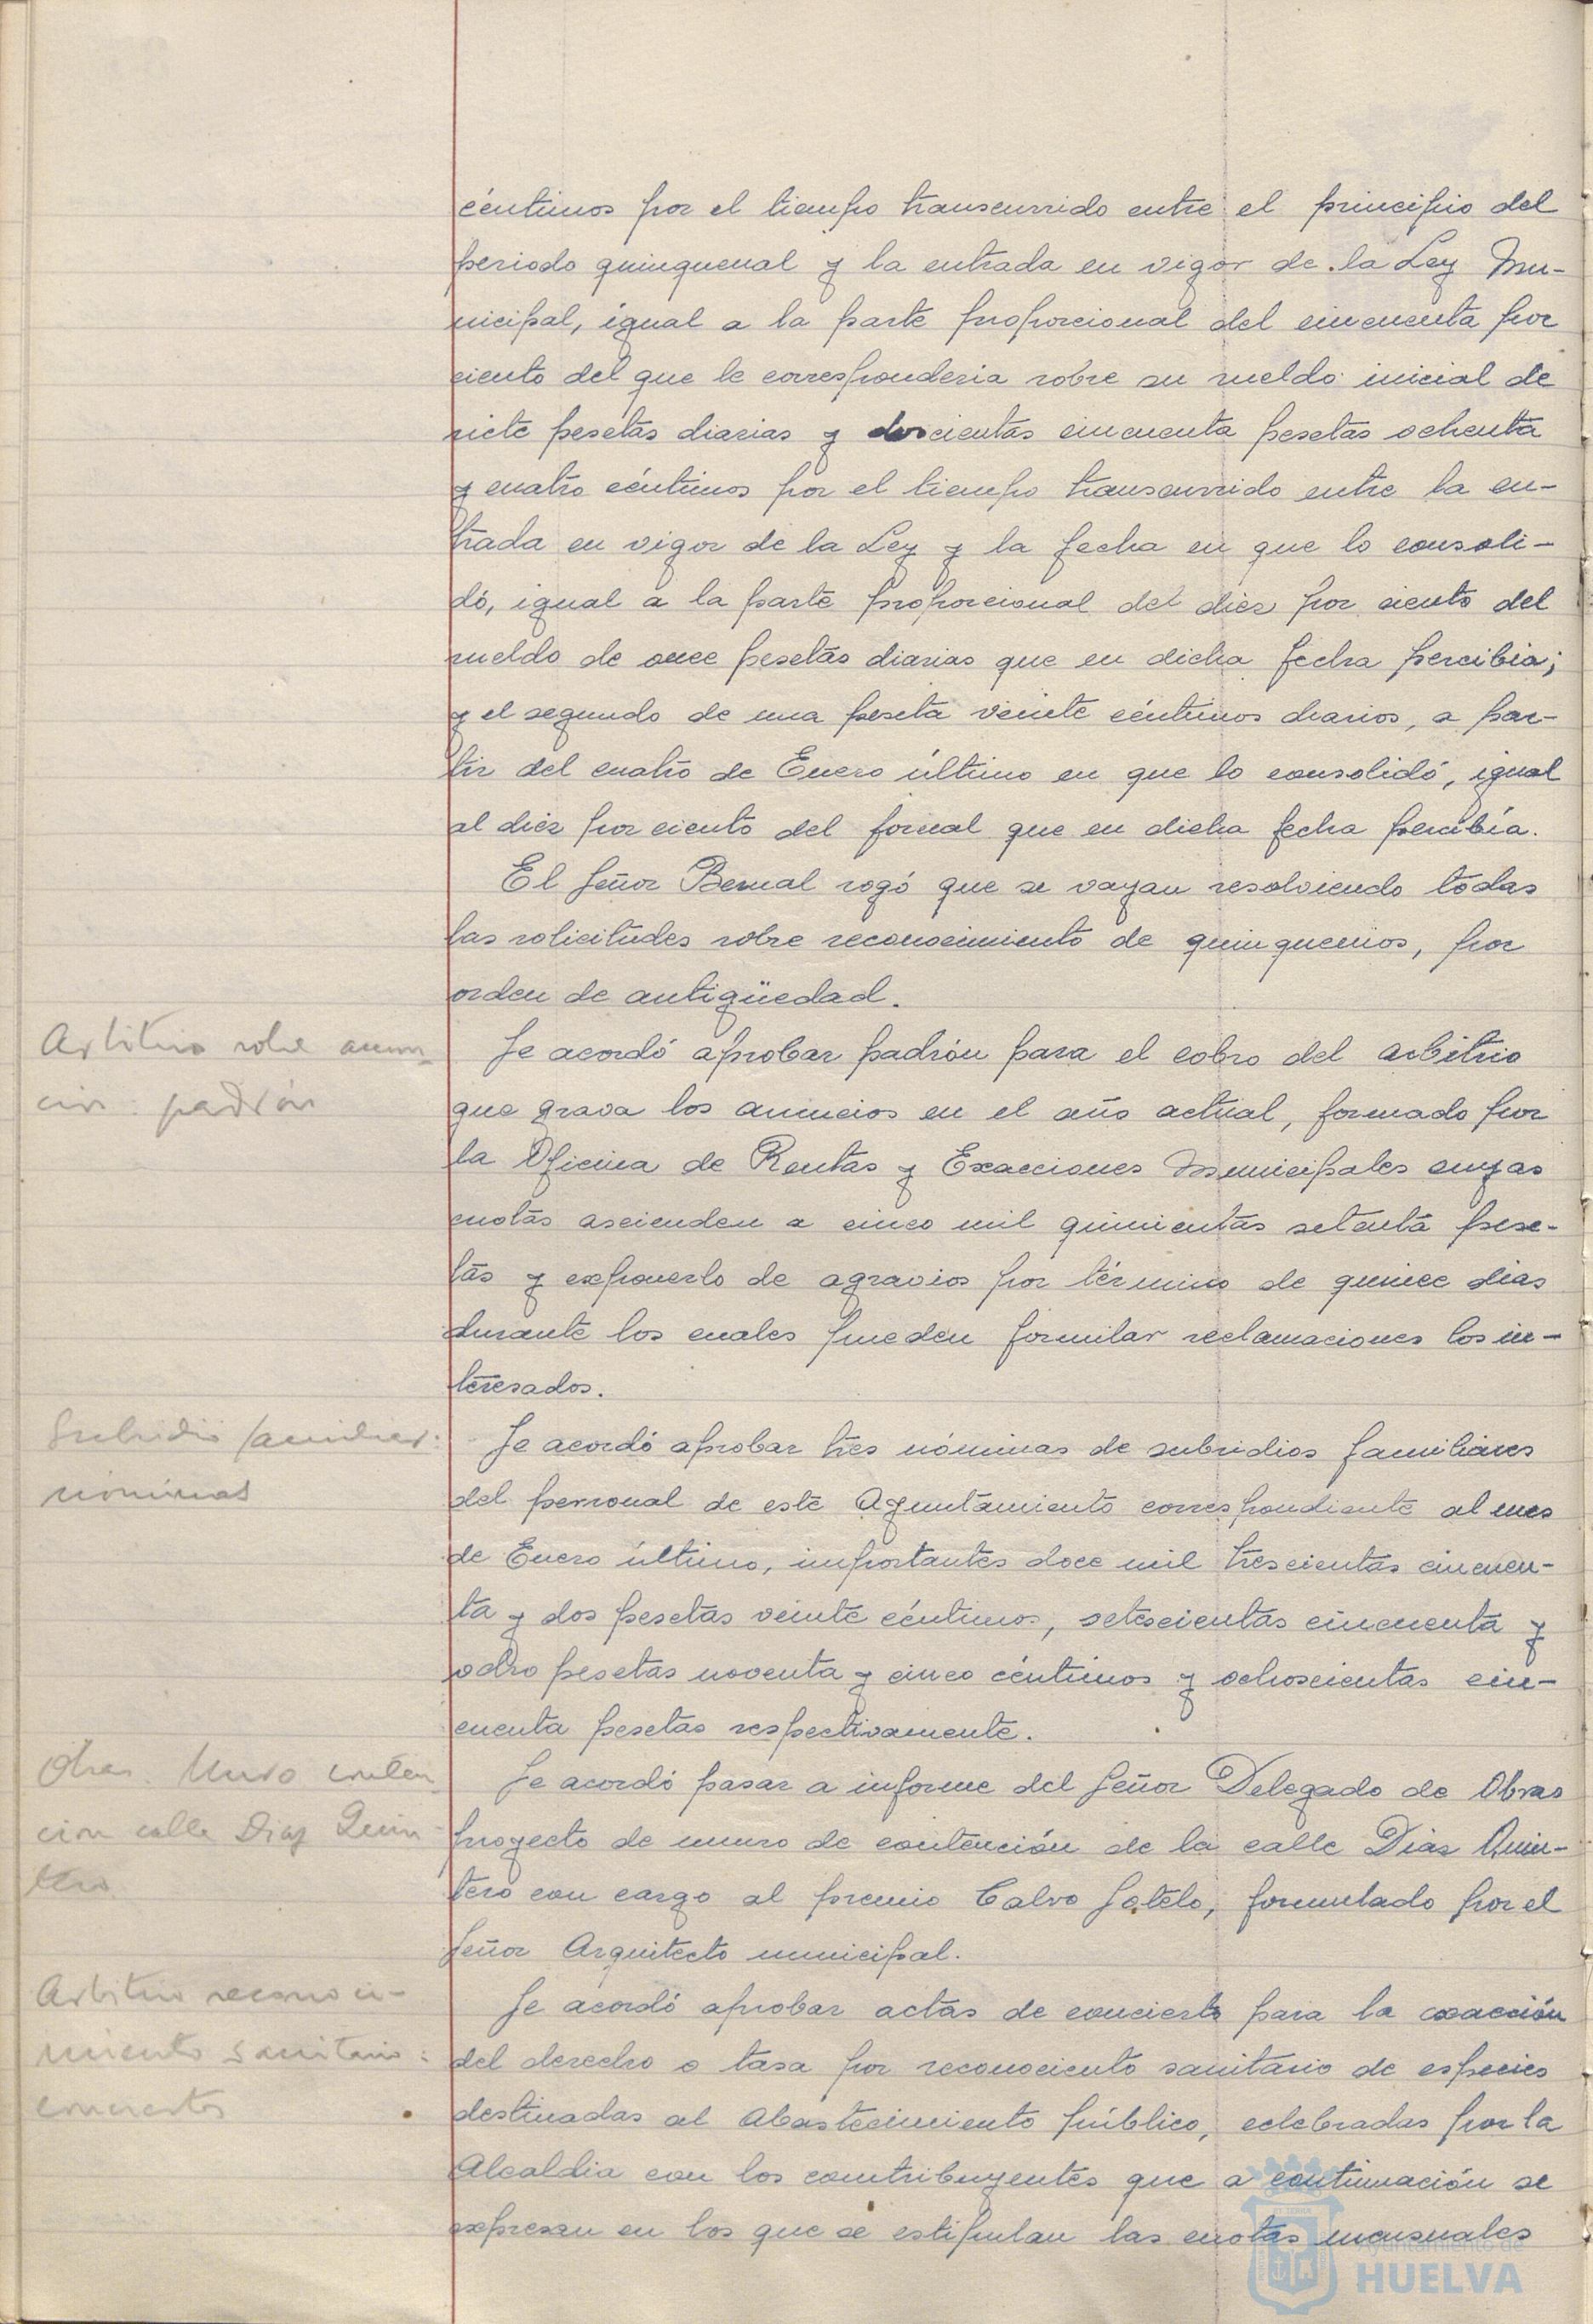 céntimos por el tiempo transcurrido entre el principio del
periodo quinquenal y la entrada en vigor de la Ley Mu-
nicipal, igual a la parte proporcional del cincuenta por
ciento del que le corresponderia sobre su sueldo inicial de
siete pesetas diarias y doscientas cincuenta pesetas ochenta
y cuatro céntimos por el tiempo transcurrido entre la en-
trada en vigor de la Ley y la fecha en que lo consoli-
dó, igual a la parte proporcional del diez por ciento del
sueldo de once pesetas diarias que en dicha fecha percibia;
y el segundo de una peseta veinte céntimos diarios, a par-
tir del cuatro de Enero último en que lo consolidó, igual
al diez por ciento del jornal que en dicha fecha percibía.
El Señor Bernal rogó que se vayan resolviendo todas
las solicitudes sobre reconocimiento de quinquenios, por
orden de antigüedad.
Arbitrio sobre anun-
cios: padrón
Se acordó aprobar padrón para el cobro del arbitrio
que grava los anuncios en el año actual, formado por
la Oficina de Rentas y Exacciones Municipales cuyas
cuotas ascienden a cinco mil quinientas setenta pese-
tas y exponerlo de agravios por término de quince dias
durante los cuales pueden formular reclamaciones los in-
teresados.
Subsidio familiar:
nóminas
Se acordó aprobar tres nóminas de subsidios familiares
del personal de este Ayuntamiento correspondiente al mes
de Enero último, importantes doce mil trescientas cincuen-
ta y dos pesetas veinte céntimos, setescientas cincuenta y
ocho pesetas noventa y cinco céntimos y ochoscientas cin-
cuenta pesetas respectivamente.
Obras. Muro conten
ción calle Diaz Quin
tero
Se acordó pasar a informe del Señor Delegado de Obras
proyecto de muro de contención de la calle Diaz Quin-
tero con cargo al premio Calvo Sotelo, formulado por el
Señor Arquitecto municipal.
Arbitrio reconoci-
miento sanitario:
conciertos
Se acordó aprobar actas de concierto para la exacción
del derecho o tasa por reconociento sanitario de especies
destinadas al Abastecimiento público, celebradas por la
Alcaldia con los contribuyentes que a continuación se
expresan en los que se estipulan las cuotas mensuales
Ayuntamiento de
HUELVA